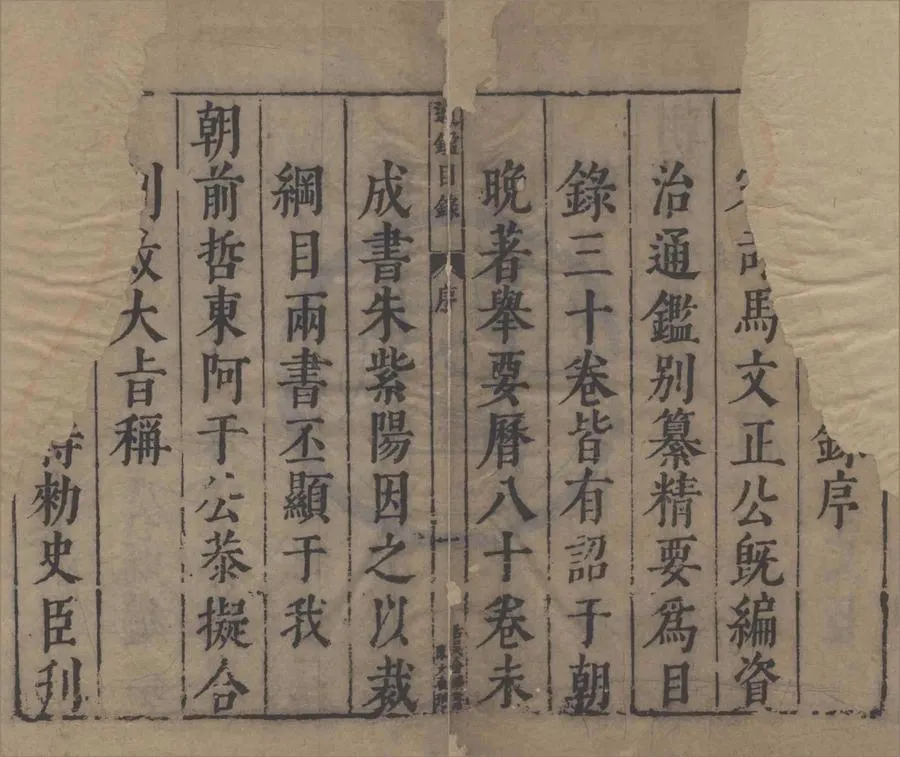 錄序
司馬文正公既編資
治通鑑別纂精要爲目
錄三十卷皆有詔于朝
晚著舉要曆八十卷未
通鑑目錄 序 一
成書朱紫陽因之以裁
綱目兩書丕顯于我
朝前哲東阿于公恭擬合
刊放大旨稱
特勑史臣刊